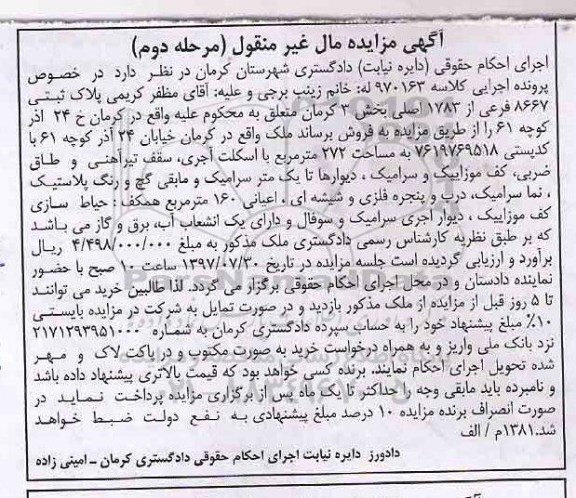 آگهی مزایده مال غیر منقول (مرحله دوم)
اجرای احکام حقوقی (دایره نیابت) دادگستری شهرستان کرمان در نظر دارد در خصوص
پرونده اجرایی کلاسه ۹۷۰۱۶۳ له: خانم زینب برجی و علیه: آقای مظفر کریمی پلاک ثبتی
۸۶۶۷ فرعی از ۱۷۸۳ اصلی بخش ۳ کرمان متعلق به محکوم علیه واقع در کرمان خ ۲۴ آذر
کوچه ۶۱ را از طریق مزایده به فروش برساند ملک واقع در کرمان خیابان ۲۴ آذر کوچه ۶۱ با
کدپستی ۷۶۱۹۷۶۹۵۱۸ به مساحت ۲۷۲ مترمربع با اسکلت آجری، سقف تیرآهنی و طاق
ضربی، کف موزاییک و سرامیک ، دیوارها تا یک متر سرامیک و مابقی گچ و رنگ پلاستیک
، نما سرامیک، درب و پنجره فلزی و شیشه ای . اعیانی ۱۶۰ مترمربع همکف : حیاط سازی
کف موزاییک ، دیوار آجری سرامیک و سوفال و دارای یک انشعاب آب، برق و گاز می باشد
که بر طبق نظریه کارشناس رسمی دادگستری ملک مذکور به مبلغ ۴/۴۹۸/۰۰۰/۰۰۰ ریال
برآورد و ارزیابی گردیده است جلسه مزایده در تاریخ ۱۳۹۷/۰۷/۳۰ ساعت صبح با حضور
نماینده دادستان و در محل اجرای احکام حقوقی برگزار می گردد. لذا طالبین خرید می توانند
تا ۵ روز قبل از مزایده از ملک مذکور بازدید و در صورت تمایل به شرکت در مزایده بایستی
۱۰٪ مبلغ پیشنهاد خود را به حساب سپرده دادگستری کرمان به شماره ۲۱۷۱۲۹۳۹۵۱۰۰۰
نزد بانک ملی واریز و به همراه درخواست خرید به صورت مکتوب و در پاکت لاک و مهر
شده تحویل اجرای احکام نمایند. برنده کسی خواهد بود که قیمت بالاتری پیشنهاد داده باشد
و نامبرده باید مابقی وجه را حداکثر تا یک ماه پس از برگزاری مزایده پرداخت نماید در
صورت انصراف برنده مزایده ۱۰ درصد مبلغ پیشنهادی به نفع دولت ضبط خواهد
شد.۱۳۸۱م / الف
دادورز دایره نیابت اجرای احکام حقوقی دادگستری کرمان - امینی زاده